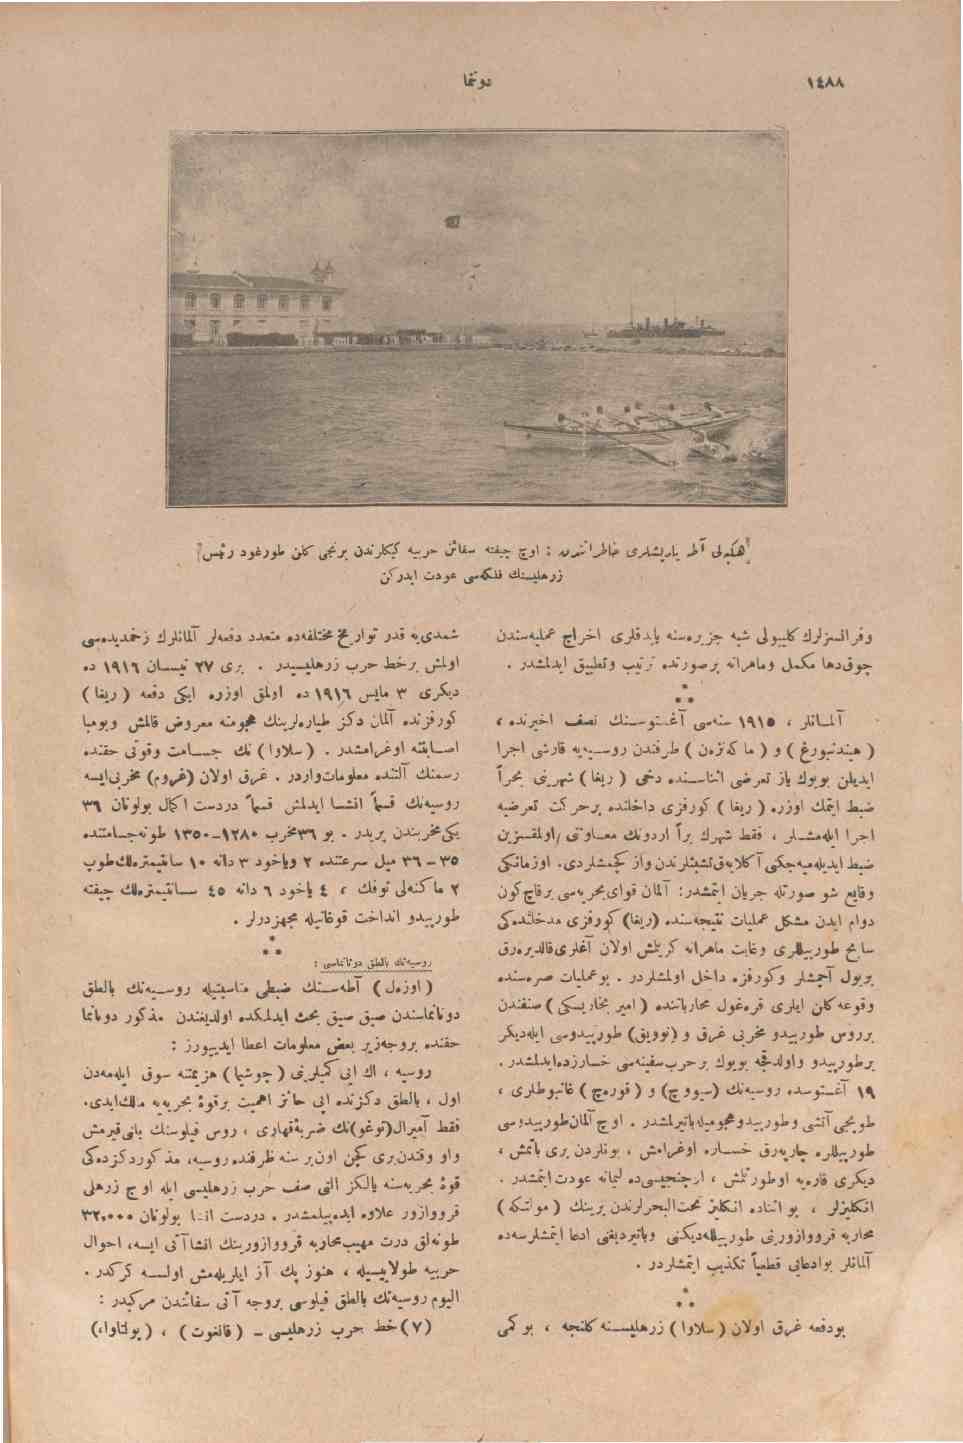 ١٤٨٨
دوننما
هكبه‌لی آطه یاریشلری خاطراتندن : اوچ چیفته سفائن حربیه كیكلرندن برنجی كلن طورغود رئیس
زرهلیسنك فلكه‌سی عودت ایدركن
وفرانسزلرك كلیبولی شبه جزیره‌سنه یاپدقلری اخراج عملیه‌سندن
چوق‌دها مكمل وماهرانه برصورتده ترتیب وتطبیق ایدلمشدر .
آلمـانلر ، ١٩١٥ سنه‌سی آغستوسـنك نصف اخیرنده ،
( هیندنبورغ ) و ( ماكه‌نزه‌ن ) طرفندن روسـیه‌یه قارشی اجرا
ایدیلن بویوك یاز تعرضی اثناسـنده دخی ( ریغا ) شهرینی بحراً
ضبط ایتمك اوزره ( ریغا ) كورفزی داخلنده برحركت تعرضیه
اجرا ایله‌مشـلر ، فقط شهرك براً اردونك معـاونتی اولمقسزین
ضبط ایدیله‌میه‌جكنی آكلایه‌رق تشبثلرندن واز كچمشلردی. اوزمانكی
وقایع شو صورتله جریان ایتمشدر: آلمان قوای‌بحریه‌سی برقاچ‌كون
دوام ایدن مشكل عملیات نتیجه‌سنده (ریغا) كورفزی مدخلنده‌كی
سابح طورپیللری وغایت ماهرانه كریلمش اولان آغلری‌قالدیره‌رق
بریول آچمشلر وكورفزه داخل اولمشلردر . بوعملیات صره‌سنده
وقوعه‌كلن ایلری قره‌غول محارباتنده ( امیر بخاریسكی ) صنفندن
برروس طورپیدو مخربی غرق و (نوویق) طورپیدوسی ایله‌دیكر
برطورپیدو واولدقچه بویوك برحرب‌سفینه‌سی خسـارزده‌ایدلمشدر.
١٩ آغستوسده روسیه‌نك (سیووچ) و ( قوره‌چ ) غانبوطلری ،
طوپجی آتشی وطورپیدوهجومیله‌باتیرلمشدر . اوچ آلمان‌طورپیدوسی
طورپیللره چارپه‌رق خسـاره اوغرامش ، بونلردن بری باتمش ،
دیكری قاره‌یه اوطورتلمش ، اوچنجیسی‌ده لیمانه عودت‌ایتمشدر .
انكلیزلر ، بو اثناده انكلیز تحت‌البحرلرندن برینك ( مولتكه )
محاربه قرووازورینی طورپیلله‌دیكنی وباتیردیغنی ادعا ایتمشلرسه‌ده
آلمانلر بوادعایی قطعیاً تكذیب ایتمشلردر .
بودفعه غرق اولان (سلاوا ) زرهلیسـنه كلنجه ، بو كمی
شمدی‌یه قدر تواریخ مختلفه‌ده متعدد دفعه‌لر آلمانلرك زخمدیده‌سی
اولمش برخط حرب زرهلیسیدر . بری ٢٧ نیسان ١٩١٦ ده
دیكری ٣ مایس ١٩١٦ده اولمق اوزره ایكی دفعه ( ریغا )
كورفزنده آلمان دكز طیاره‌لرینك هجومنه معروض قالمش وبومبا
اصـابتنه اوغرامشدر . (سلاوا ) نك جسـامت وقوتی حقنده
رسمنك آلتنده معلومات‌واردر . غرق اولان (غروم) مخربی‌ایسه
روسیه‌نك قسماً انشـا ایدلمش قسماً دردست اكمال بولونان ٣٦
یكی‌مخربندن بریدر . بو ٣٦مخرب ١٢٨٠ـ١٣٥٠ طونه‌جسامتنده
٣٥ – ٣٦ میل سرعتنده ٢ ویاخود ٣ دانه ١٠ سانتیمتره‌لك‌طوپ
٢ ماكنه‌لی توفك ، ٤ یاخود ٦ دانه ٤٥ سـانتیمتره‌لك چیفته
طورپیدو انداخت قوغانیله مجهزدرلر .
روسیه‌نك بالطق دونانماسی :
( اوزه‌ل ) آطه‌سـنك ضبطی مناسبتیله روسـیه‌نك بالطق
دونانماسندن صیق صیق بحث ایدلمكده اولدیغندن مذكور دونانما
حقنده بروجه‌زیر بعض معلومات اعطا ایدییورز :
روسیه ، اك ایی كمیلرینی ( چوشیما ) هزیمتنه سوق ایله‌مه‌دن
اول ، بالطق دكزنده ایی حائز اهمیت برقوۀ بحریه‌یه مالك‌ایدی.
فقط آمیرال(توغو)نك ضربۀقهاری ، روس فیلوسنك بانی‌قیرمش
واو وقتدن‌بری كچن اون‌بر سنه ظرفنده روسیه، مذكوردكزده‌كی
قوۀ بحریه‌سنه یالكز آلتی صف حرب زرهلیسی ایله اوچ زرهلی
قرووازور علاوه ایده‌بیلمشدر . دردست انشـا بولونان ٣٢,٠٠٠
طونه‌لق درت مهیب‌محاربه قرووازورینك انشاآتی ایسه، احوال
حربیه طولاییسیله ، هنوز پك آز ایلریله‌مش اولسـه كركدر .
الیوم روسیه‌نك بالطق فیلوسی بروجه آتی سفائندن مركبدر :
(٧)خط حرب زرهلیسی ــ ( قانغوت ) ، ( پولتاوا، )